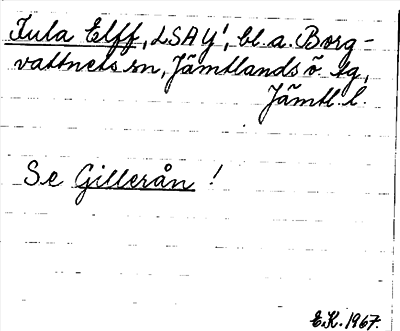 Jula Elff, LSAY', bl.a. Borg-
vattnets sn, Jämtlands ö. tg,
Jämtl. l.
Se Gillerån !
E.K. 1967.